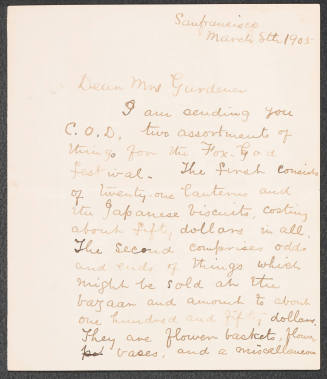 Sanfrancisco
March 8th 1905
Dear Mrs Gardener
I am sending you
C.O.D. two assortments of
things for the Fox-God
festival. The first consists
of twenty-one lanterns and
the Japanese biscuits, costing
about fifty dollars in all.
The second comprises odds
and ends of things which
might be sold at the
bazaar and amount to about
one hundred and fifty dollars.
They are flower baskets, flower
vases, and a miscellaneous